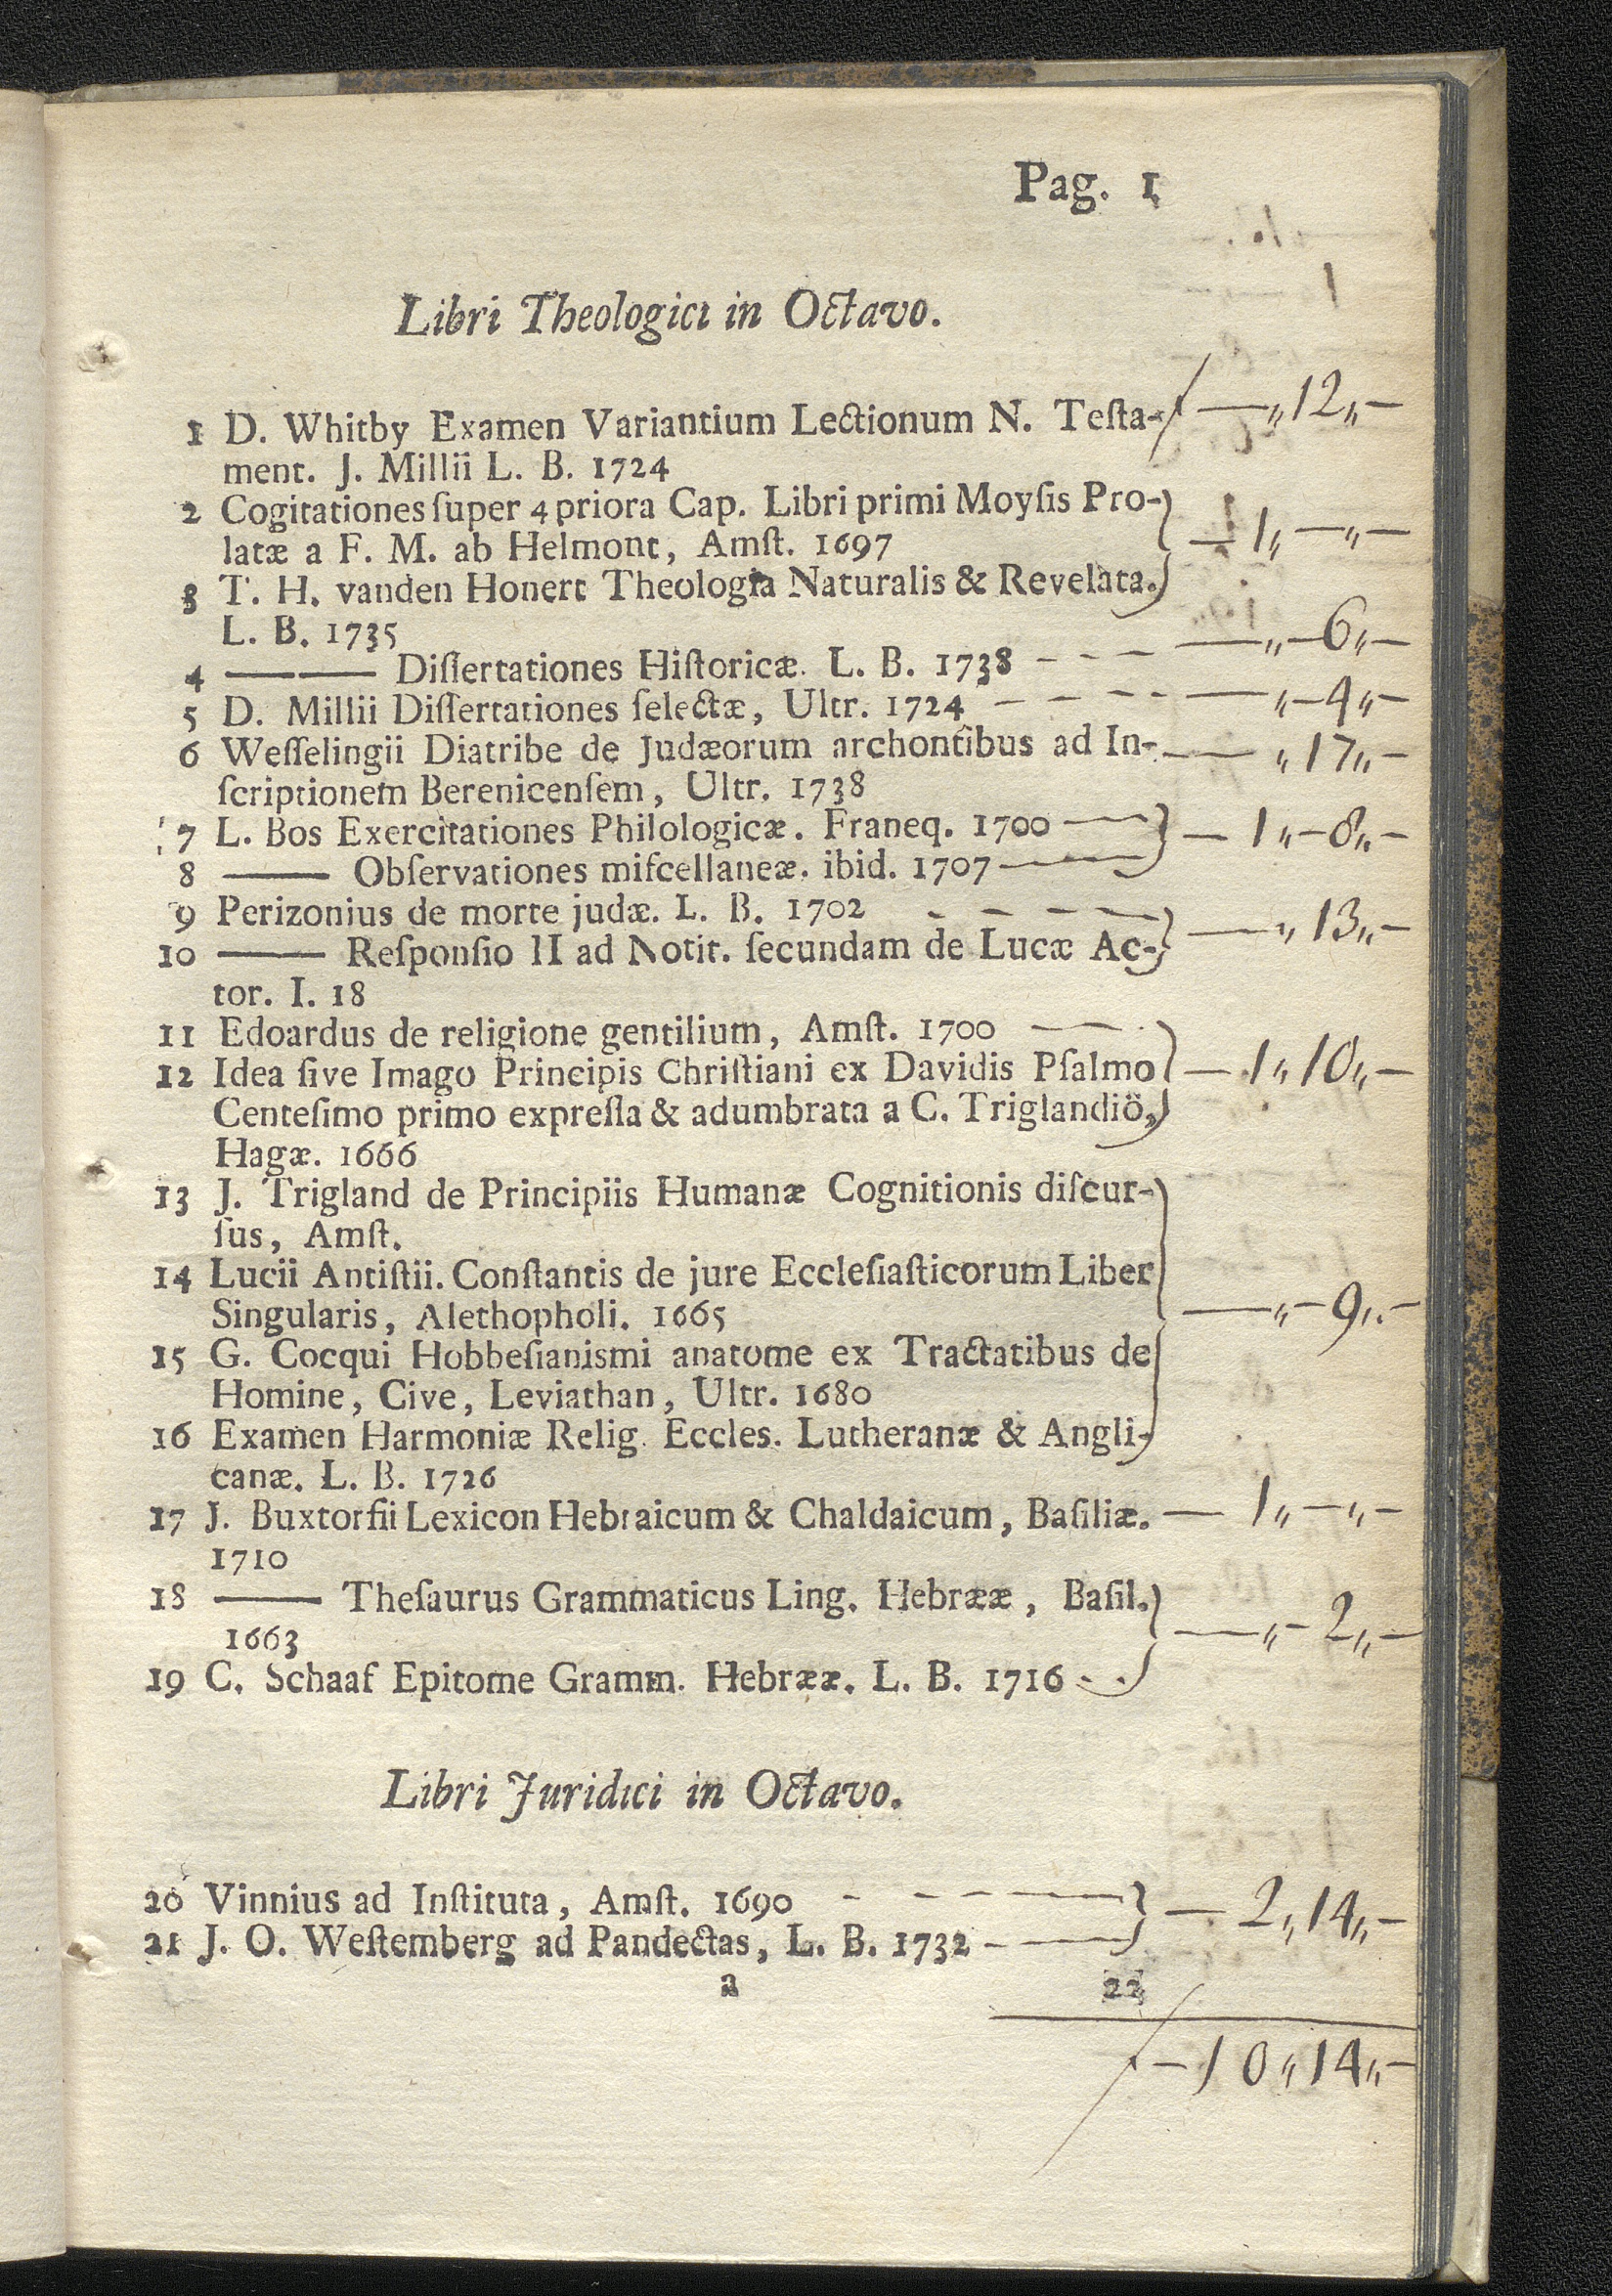 Pag. 1
Libri Theologici in Octavo.
1 D. Whitby Examen Variantium Lectionum N. Testa- — „ 12 „ —
ment. J. Millii L. B. 1724
2 Cogitationes ſuper 4 priora Cap. Libri primi Moyſis Pro-
latæ a F. M. ab Helmont, Amſt. 1697 — 1 „ — „ —
3 T. H. vanden Honert Theologia Naturalis & Revelata.
L. B. 1735
4 ——— Diſſertationes Hiſtoricæ. L. B. 1738 - - - — „ — 6 „ —
5 D. Millii Diſſertationes ſelectæ, Ultr. 1724 - - - - — „ — 4 „ —
6 Weſſelingii Diatribe de Judæorum archontibus ad In- — „ 17 „ —
ſcriptionem Berenicenſem, Ultr. 1738
7 L. Bos Exercitationes Philologicæ. Franeq. 1700 — 1 „ — 8 „ —
8 ——— Obſervationes miſcellaneæ. ibid. 1707
9 Perizonius de morte judæ. L. B. 1702 - - - - — „ 13 „ —
10 ——— Reſponſio II ad Notit. ſecundam de Lucæ Ac-
tor. I. 18
11 Edoardus de religione gentilium, Amſt. 1700
12 Idea ſive Imago Principis Chriſtiani ex Davidis Pſalmo — 1 „ 10 „ —
Centeſimo primo expreſſa & adumbrata a C. Triglandiö,
Hagæ. 1666
13 J. Trigland de Principiis Humanæ Cognitionis diſcur-
ſus, Amſt.
14 Lucii Antiſtii. Conſtantis de jure Eccleſiaſticorum Liber
Singularis, Alethopholi. 1665 — „ — 9 „ —
15 G. Cocqui Hobbeſianismi anatome ex Tractatibus de
Homine, Cive, Leviathan, Ultr. 1680
16 Examen Harmoniæ Relig. Eccles. Lutheranæ & Angli-
canæ. L. B. 1726
17 J. Buxtorfii Lexicon Hebraicum & Chaldaicum, Baſiliæ. — 1 „ — „ —
1710
18 ——— Theſaurus Grammaticus Ling. Hebrææ, Baſil.
1663 — „ — 2 „ —
19 C. Schaaf Epitome Gramm. Hebrææ. L. B. 1716
Libri Juridici in Octavo.
20 Vinnius ad Inſtituta, Amſt. 1690 - - - - — 2 „ 14 „ —
21 J. O. Weſtemberg ad Pandectas, L. B. 1732
a 22
— 10 „ 14 „ —